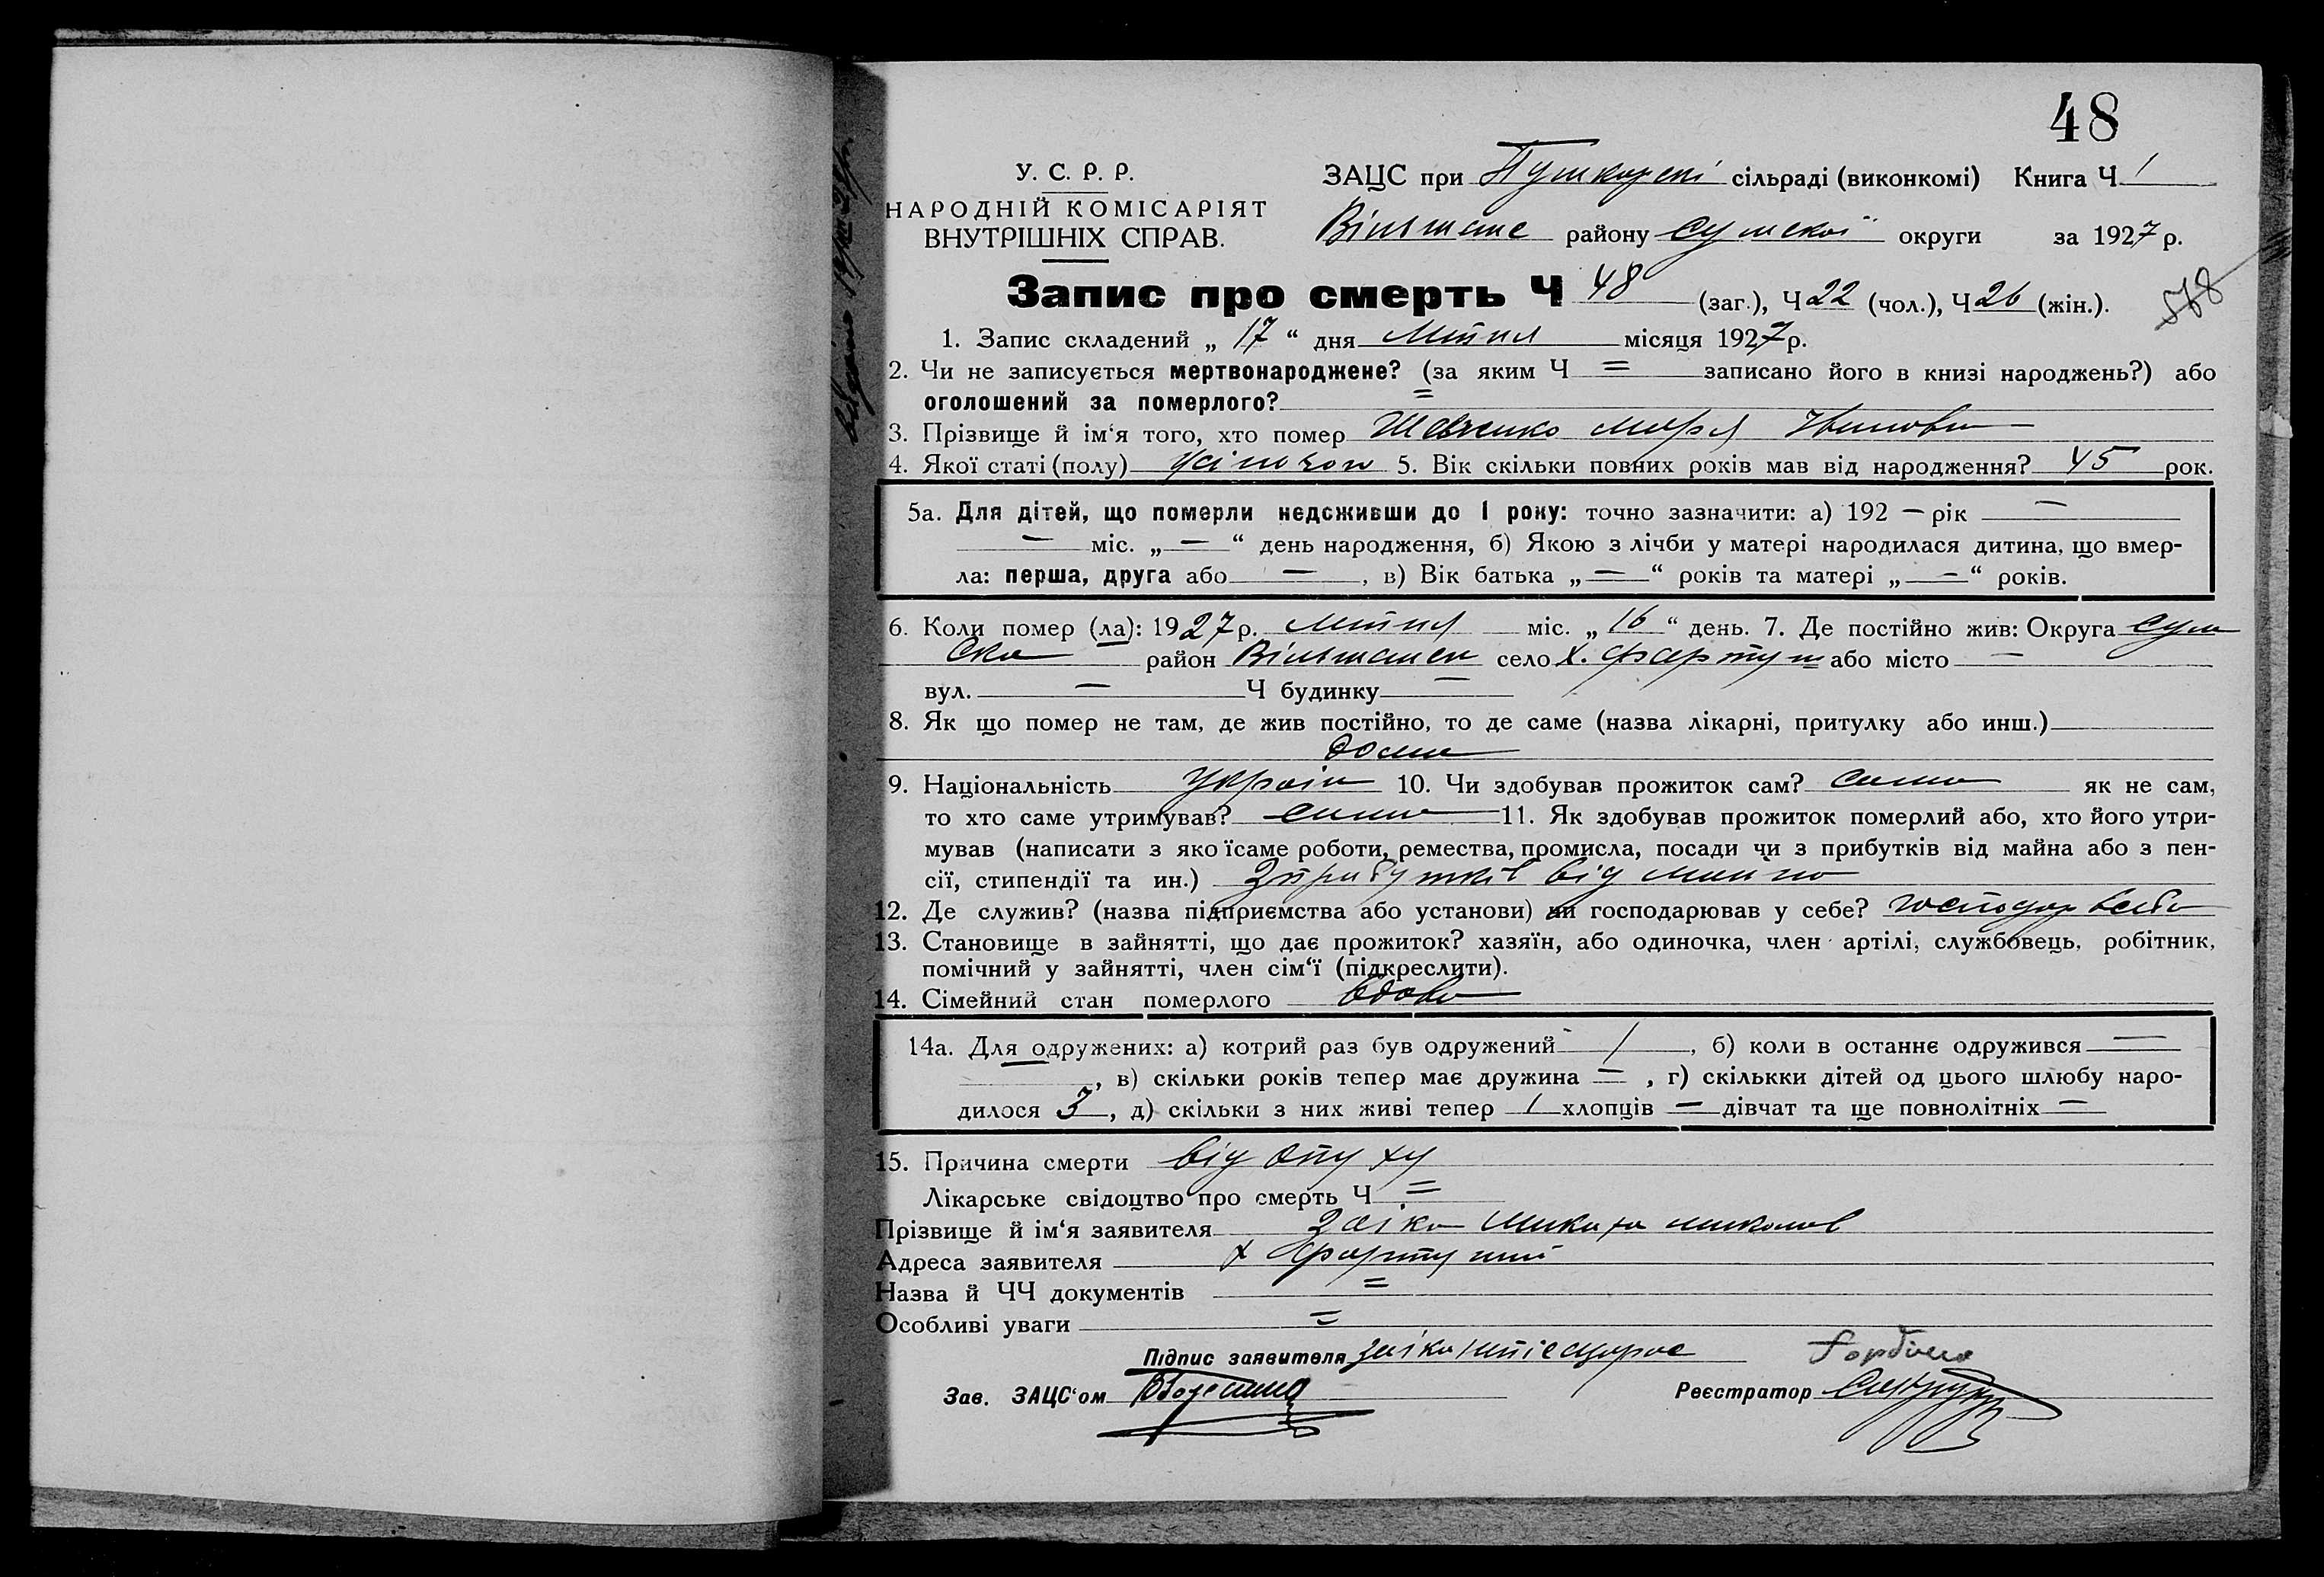 48
У. С. Р. Р.
НАРОДНІЙ КОМІСАРІЯТ
ВНУТРІШНІХ СПРАВ.
ЗАЦС при Пушкарсні сільраді (виконкомі) Книга Ч 1
Вільшанс району Сумскої округи за 1927 р.
Запис про смерть Ч 48 (заг.), Ч 22 (чол.), Ч 26 (жін.).
578
1. Запис складений „ 17 “ дня Літня місяця 1927 р.
2. Чи не записується мертвонароджене? (за яким Ч = записано його в книзі народжень?) або
оголошений за померлого? =
3. Прізвище й ім‘я того, хто помер Шевченко Марія Іванова —
4. Якої статі (полу) 5. Вік скільки повних років мав від народження? 45 рок.
5а. Для дітей, що померли недоживши до 1 року: точно зазначити: а) 192 — рік —
— міс. „ — “ день народження, б) Якою з лічби у матері народилася дитина, що вмер-
ла: перша, друга або — , в) Вік батька „ — “ років та матері „ — “ років.
6. Коли помер (ла): 1927 р. Літня міс. „ 16 “ день. 7. Де постійно жив: Округа Сум
Ска район Вільшанск село Х. Фартуш або місто —
вул. — Ч будинку —
8. Як що помер не там, де жив постійно, то де саме (назва лікарні, притулку або инш.)
дома
9. Національність Україн 10. Чи здобував прожиток сам? сама як не сам,
то хто саме утримував? сама 11. Як здобував прожиток померлий або, хто його утри-
мував (написати з якоїсаме роботи, ремества, промисла, посади чи з прибутків від майна або з пен-
сії, стипендії та ин.) З прибутків від майна
12. Де служив? (назва підприємства або установи) чи господарював у себе? господар в себе
13. Становище в зайнятті, що дає прожиток? хазяїн, або одиночка, член артілі, службовець, робітник,
помічний у зайнятті, член сім‘ї (підкреслити).
14. Сімейний стан померлого вдова
14а. Для одружених: а) котрий раз був одружений 1 , б) коли в останнє одружився —
, в) скільки років тепер має дружина — , г) скількки дітей од цього шлюбу наро-
дилося 3 , д) скільки з них живі тепер 1 хлопців — дівчат та ще повнолітніх —
15. Причина смерти від опуху
Лікарське свідоцтво про смерть Ч =
Прізвище й ім‘я заявителя Заіка Микита миколов
Адреса заявителя х Фартуший
Назва й ЧЧ документів =
Особливі уваги =
Підпис заявителя заіка
Зав. ЗАЦС‘ом Реєстратор